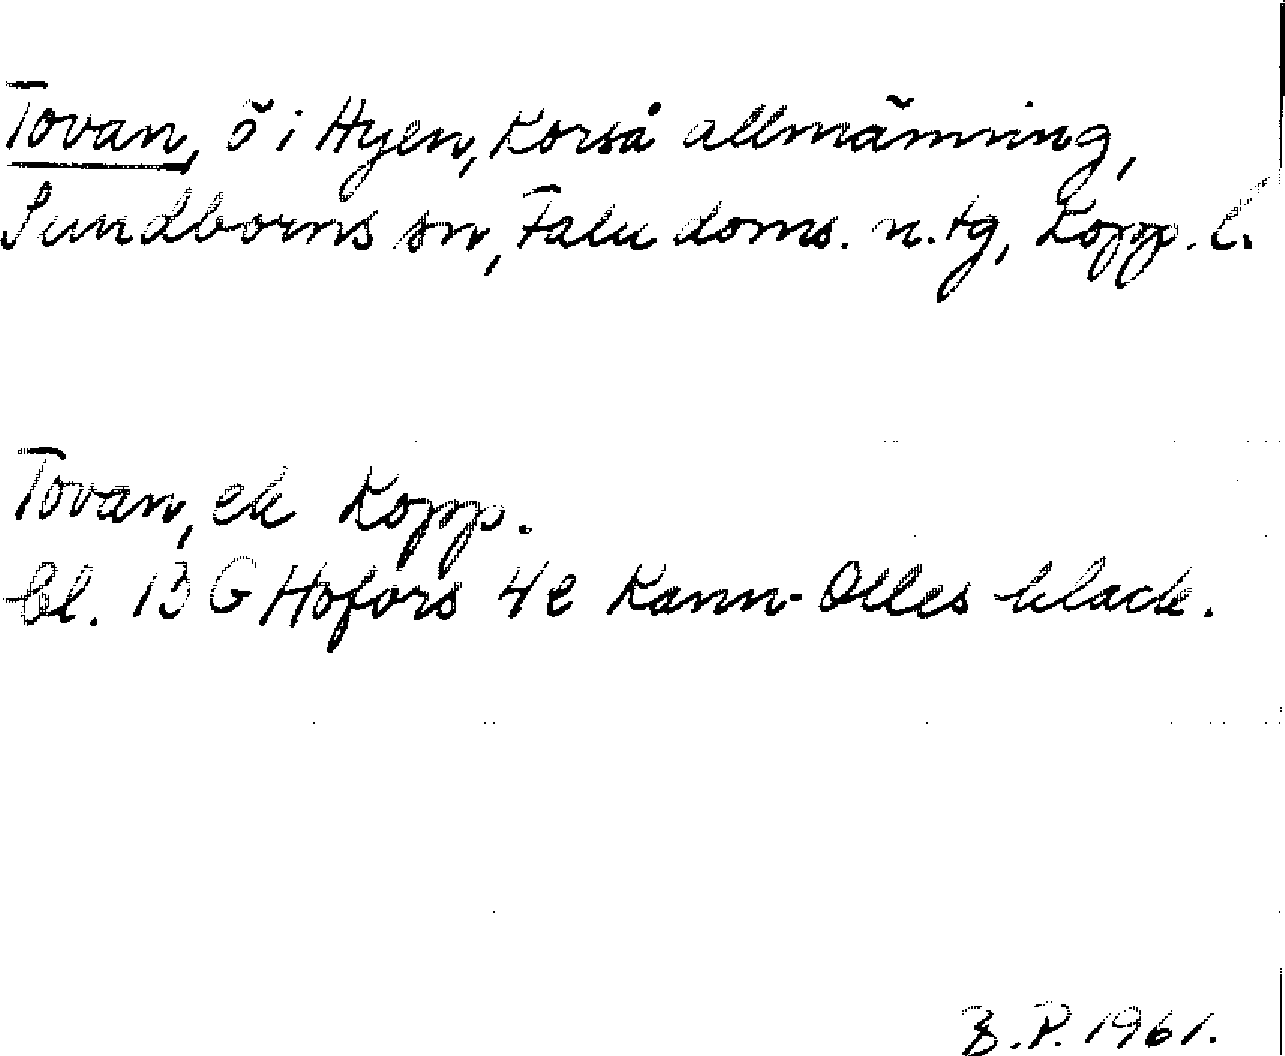 Tovan, ö i Hyen, Korså allmänning,
Sundborns sn, Falu doms. n. tg, Kopp. l.
Tovan, ek Kopp.
bl. 13 G Hofors 4e Kann-Olles klack.
B.P. 1961.